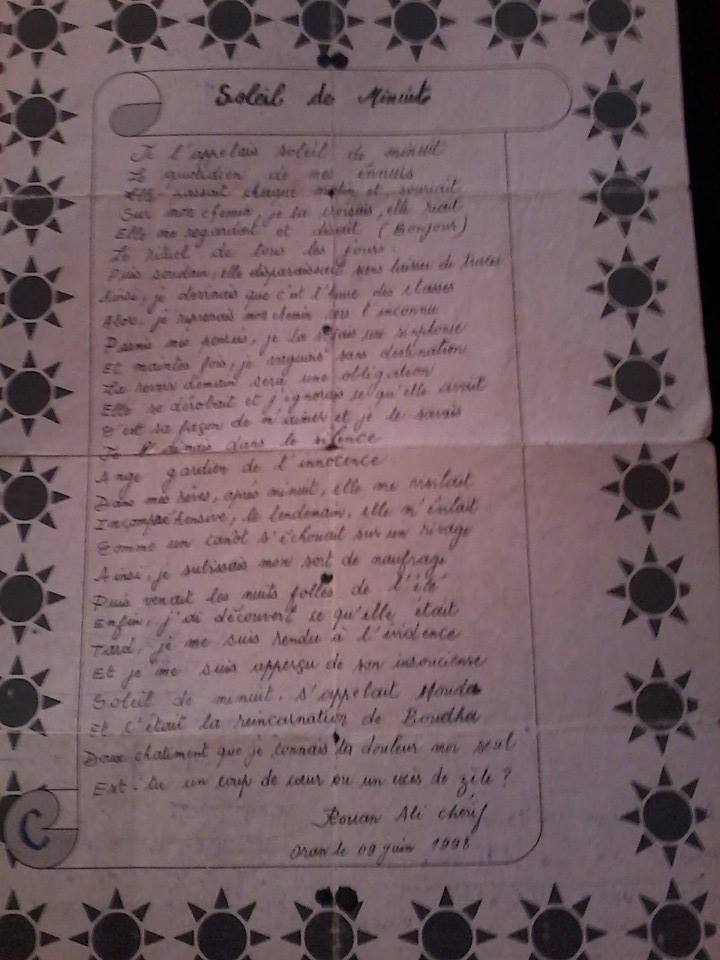 Soleil de Minuit
Je l'appelais soleil de minuit
Le quotidien de mes ennuis
Elle passait chaque matin et souriait
Sur mon chemin, je la croisais, elle riait
Elle me regardait et disait (Bonjour)
Le rituel de tous les jours.
Puis soudain, elle disparaissait sans laisser de traces
Ainsi, je devinais que c'est l'heure des classes
Alors, je reprenais mon chemin vers l'inconnu
Parmis mes pensées, je la une symphonie
Et maintes fois, je sans destination
La revoir demain sera une obligation
Elle se dérobait et j'ignorais ce qu'elle avait
C'est sa façon de m'aimer et je le savais
Je l'aimais dans le silence
Ange gardien de l'innocence
Dans mes rêves, après minuit, elle me visitait
Incompréhensive, le lendemain, elle m'évitait
Comme un canot s'échouait sur un rivage
Ainsi, je subissais mon sort de naufrage
Puis venait les nuits folles de l'été
Enfin, j'ai découvert ce qu'elle était
Tard, je me suis rendu à l'évidence
Et je me suis apperçu de son insouciense
Soleil de minuit, s'appelait Houda
Et c'était la réincarnation de Boudha
Doux chatiment que je connais la douleur moi seul
Est-tu un coup de cœur ou un de zèle ?
Rouan Ali Cherif
Oran le 09 juin 1998
C